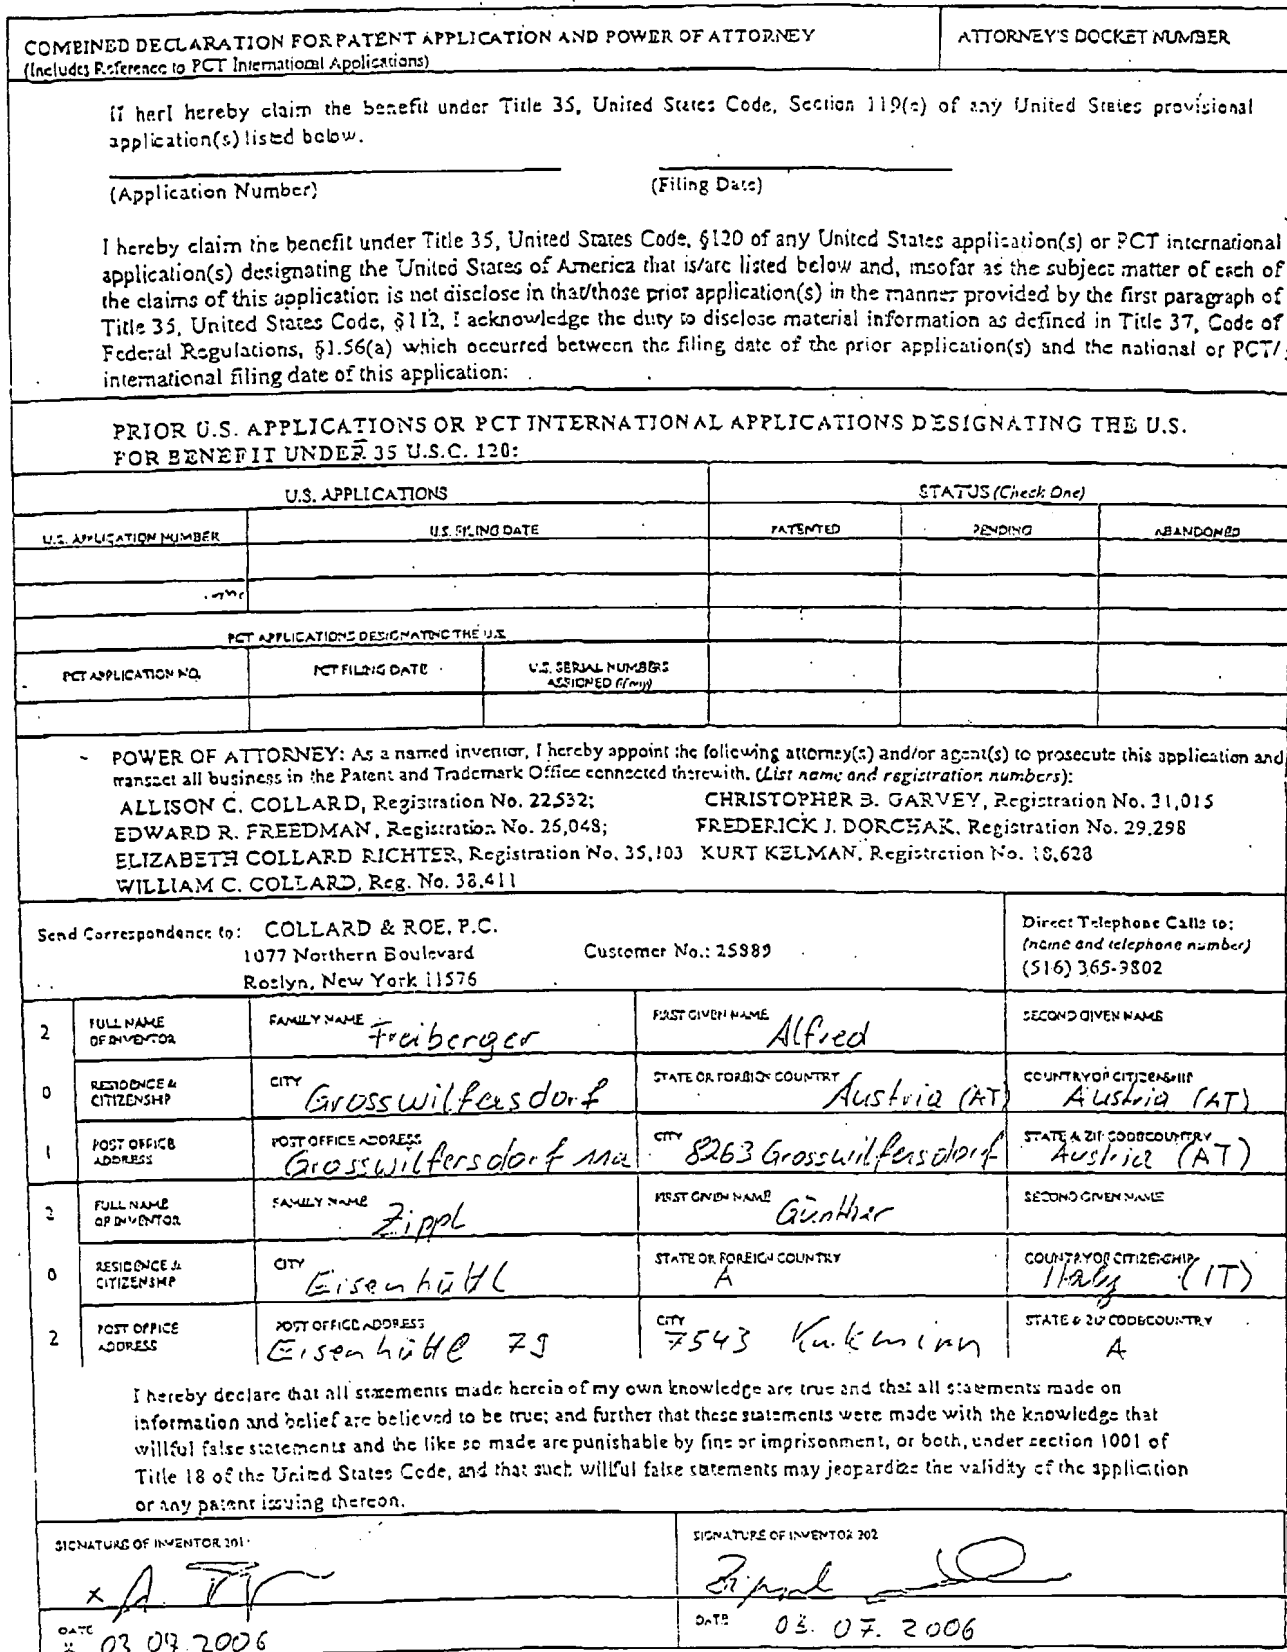 COMBINED DECLARATION FOR PATENT APPLICATION AND POWER OF ATTORNEY
(Includes Reference to PCT International Applications)
ATTORNEY'S DOCKET NUMBER
II herI hereby claim the benefit under Title 35, United States Code, Section 119(e) of any United States provisional
application(s) listed below.
(Application Number)
(Filing Date)
I hereby claim the benefit under Title 35, United States Code, §120 of any United States application(s) or PCT international
application(s) designating the United States of America that is/are listed below and, insofar as the subject matter of each of
the claims of this application is not disclose in that/those prior application(s) in the manner provided by the first paragraph of
Title 35, United States Code, §112, I acknowledge the duty to disclose material information as defined in Title 37, Code of
Federal Regulations, §1.56(a) which occurred between the filing date of the prior application(s) and the national or PCT/
international filing date of this application:
PRIOR U.S. APPLICATIONS OR PCT INTERNATIONAL APPLICATIONS DESIGNATING THE U.S.
FOR BENEFIT UNDER 35 U.S.C. 120:
U.S. APPLICATIONS
STATUS (Check One)
U.S. APPLICATION NUMBER
U.S. FILING DATE
PATENTED
PENDING
ABANDONED
PCT APPLICATIONS DESIGNATING THE U.S.
PCT APPLICATION NO.
PCT FILING DATE
U.S. SERIAL NUMBERS
ASSIGNED (if any)
POWER OF ATTORNEY: As a named inventor, I hereby appoint the following attorney(s) and/or agent(s) to prosecute this application and
transact all business in the Patent and Trademark Office connected therewith. (List name and registration numbers):
ALLISON C. COLLARD, Registration No. 22,532; CHRISTOPHER B. GARVEY, Registration No. 31,015
EDWARD R. FREEDMAN, Registration No. 26,048; FREDERICK J. DORCHAK, Registration No. 29,298
ELIZABETH COLLARD RICHTER, Registration No. 35,103 KURT KELMAN, Registration No. 18,628
WILLIAM C. COLLARD, Reg. No. 38,411
Send Correspondence to: COLLARD & ROE, P.C.
1077 Northern Boulevard
Roslyn, New York 11576
Customer No.: 25889
Direct Telephone Calls to:
(name and telephone number)
(516) 365-9802
2 FULL NAME
OF INVENTOR
FAMILY NAME Freiberger
FIRST GIVEN NAME Alfred
SECOND GIVEN NAME
0 RESIDENCE &
CITIZENSHIP
CITY Grosswilfersdorf
STATE OR FOREIGN COUNTRY Austria (AT)
COUNTRY OF CITIZENSHIP Austria (AT)
1 POST OFFICE
ADDRESS
POST OFFICE ADDRESS Grosswilfersdorf
CITY 8263 Grosswilfersdorf
STATE & ZIP CODECOUNTRY Austria (AT)
2 FULL NAME
OF INVENTOR
FAMILY NAME Zippl
FIRST GIVEN NAME Günther
SECOND GIVEN NAME
0 RESIDENCE &
CITIZENSHIP
CITY Eisenhüttl
STATE OR FOREIGN COUNTRY A
COUNTRY OF CITIZENSHIP Italy (IT)
2 POST OFFICE
ADDRESS
POST OFFICE ADDRESS Eisenhüttl 79
CITY 7543 Kukmirn
STATE & ZIP CODECOUNTRY A
I hereby declare that all statements made herein of my own knowledge are true and that all statements made on
information and belief are believed to be true; and further that these statements were made with the knowledge that
willful false statements and the like so made are punishable by fine or imprisonment, or both, under section 1001 of
Title 18 of the United States Code, and that such willful false statements may jeopardize the validity of the application
or any patent issuing thereon.
SIGNATURE OF INVENTOR 201
SIGNATURE OF INVENTOR 202
x A.
DATE x 03 07.2006
DATE 03. 07. 2006